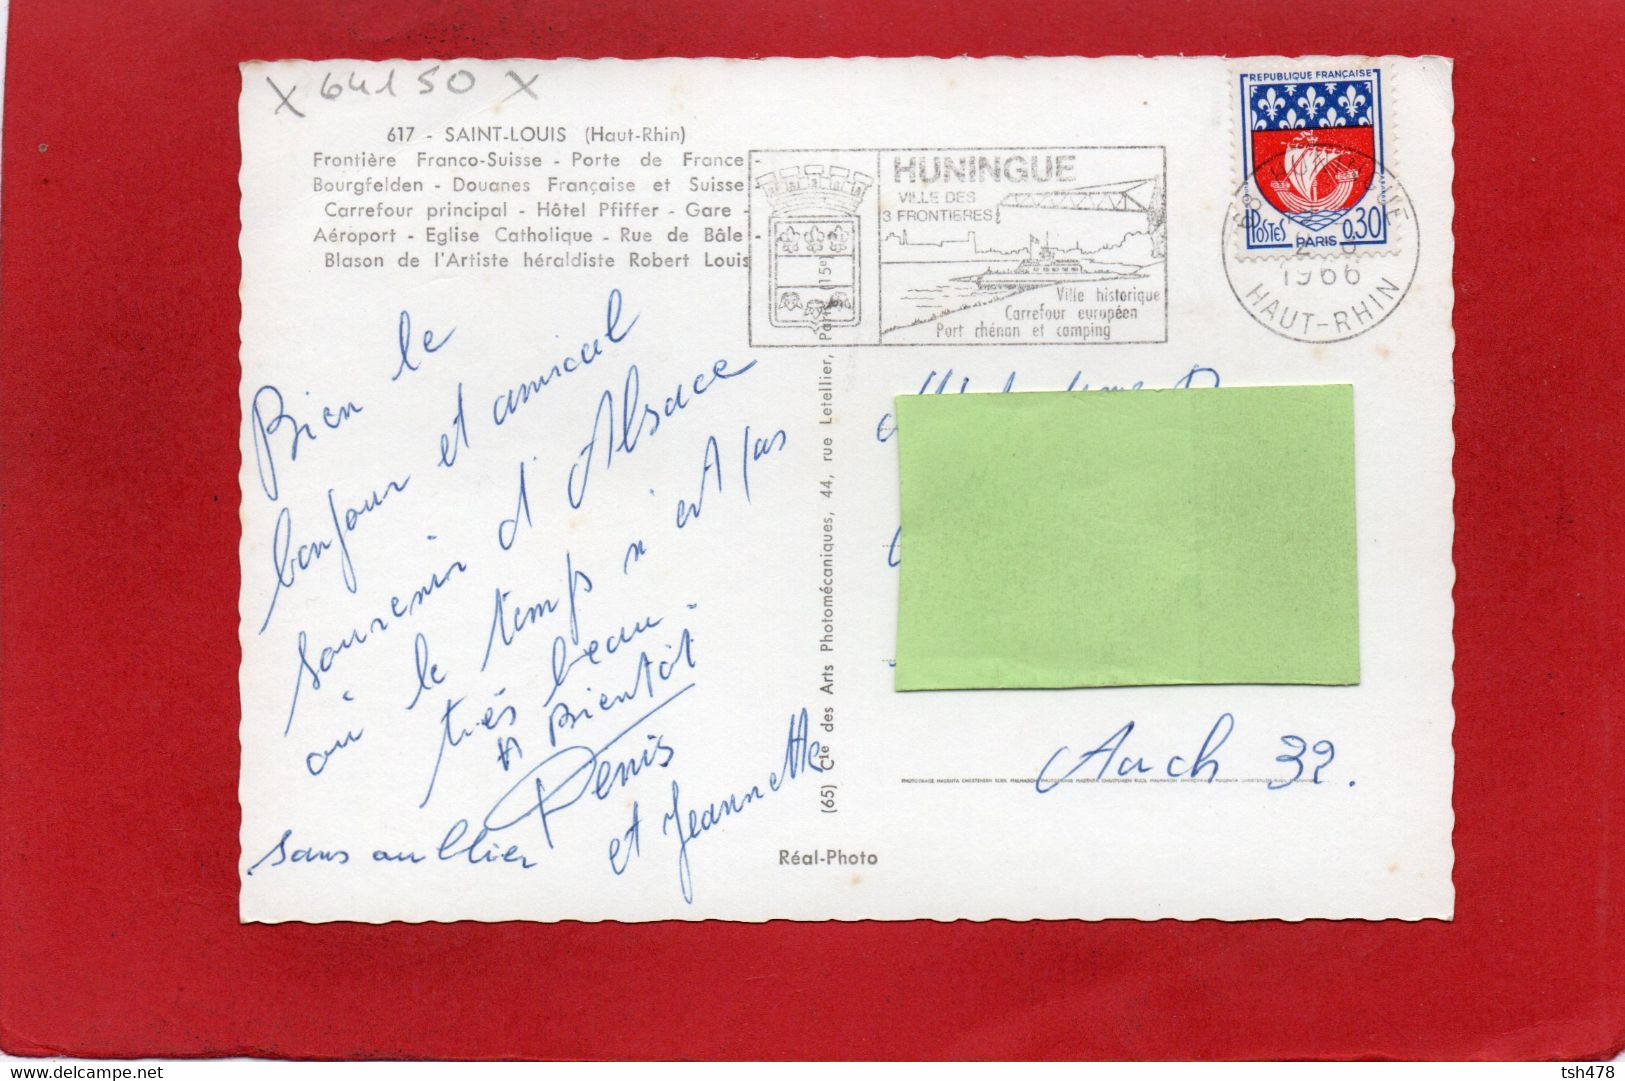 X 64150 X
617 - SAINT-LOUIS (Haut-Rhin)
Frontière Franco-Suisse - Porte de France -
Bourgfelden - Douanes Française et Suisse
Carrefour principal - Hôtel Pfiffer - Gare -
Aéroport - Eglise Catholique - Rue de Bâle -
Blason de l'Artiste héraldiste Robert Louis
HUNINGUE
VILLE DES
3 FRONTIERES
Ville historique
Carrefour européen
Port rhénan et camping
REPUBLIQUE FRANÇAISE
POSTES
PARIS
0,30
1966
HAUT-RHIN
Bien le
bonjour et amical
souvenir d'Alsace
où le temps n'est pas
très beau.
A Bientôt
Denis
et Jeannette
sans oublier
(65) Cie des Arts Photomécaniques, 44, rue Letellier, Paris (15e)
Réal-Photo
Auch 32.
tsh478